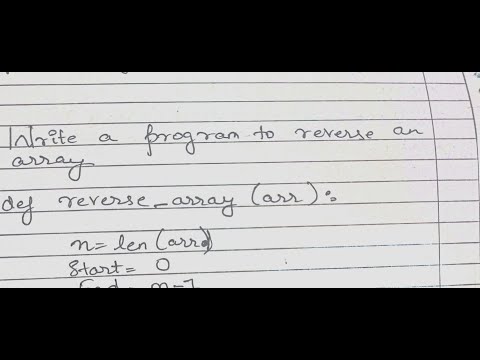 Write a program to reverse an
array
def reverse_array (arr):
n= len (arr)
Start= 0
End= n-1